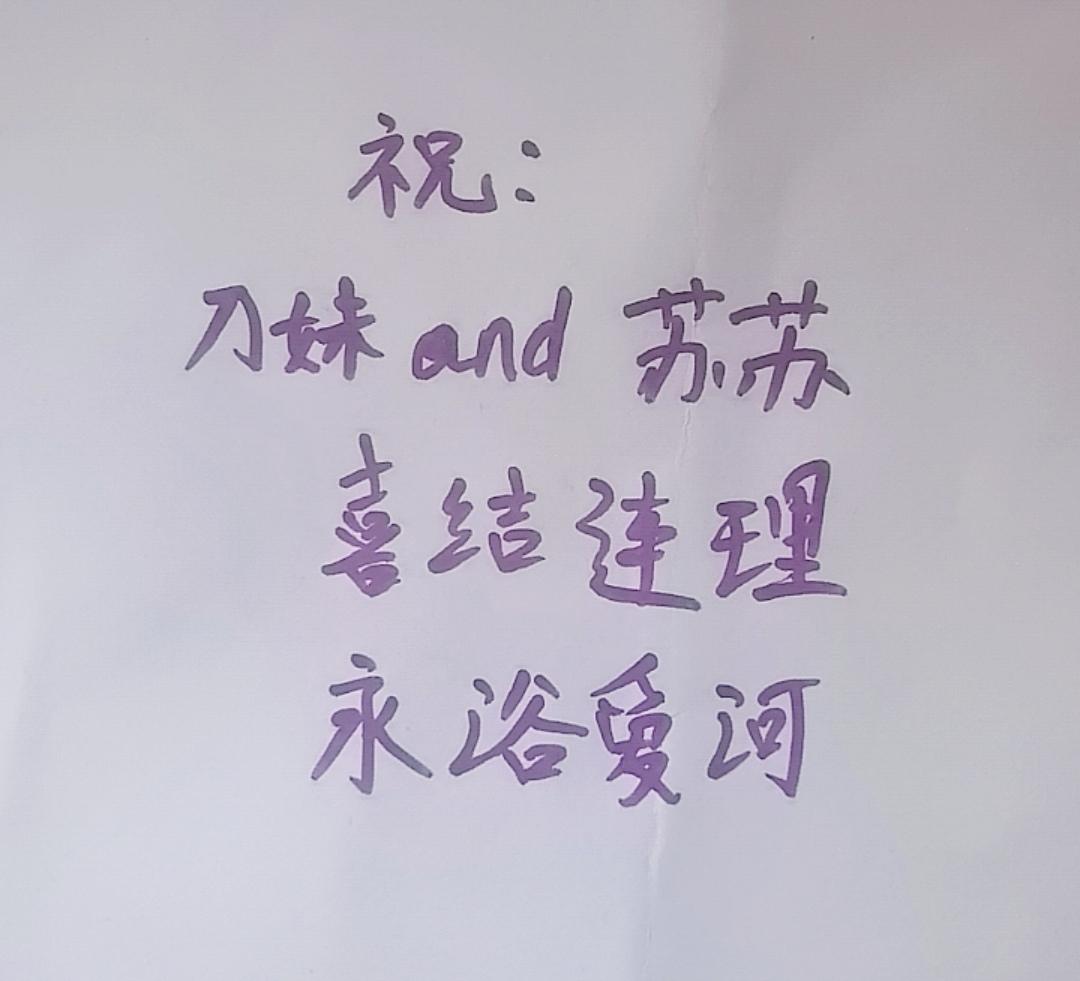 祝：
刀妹 and 苏苏
喜结连理
永浴爱河